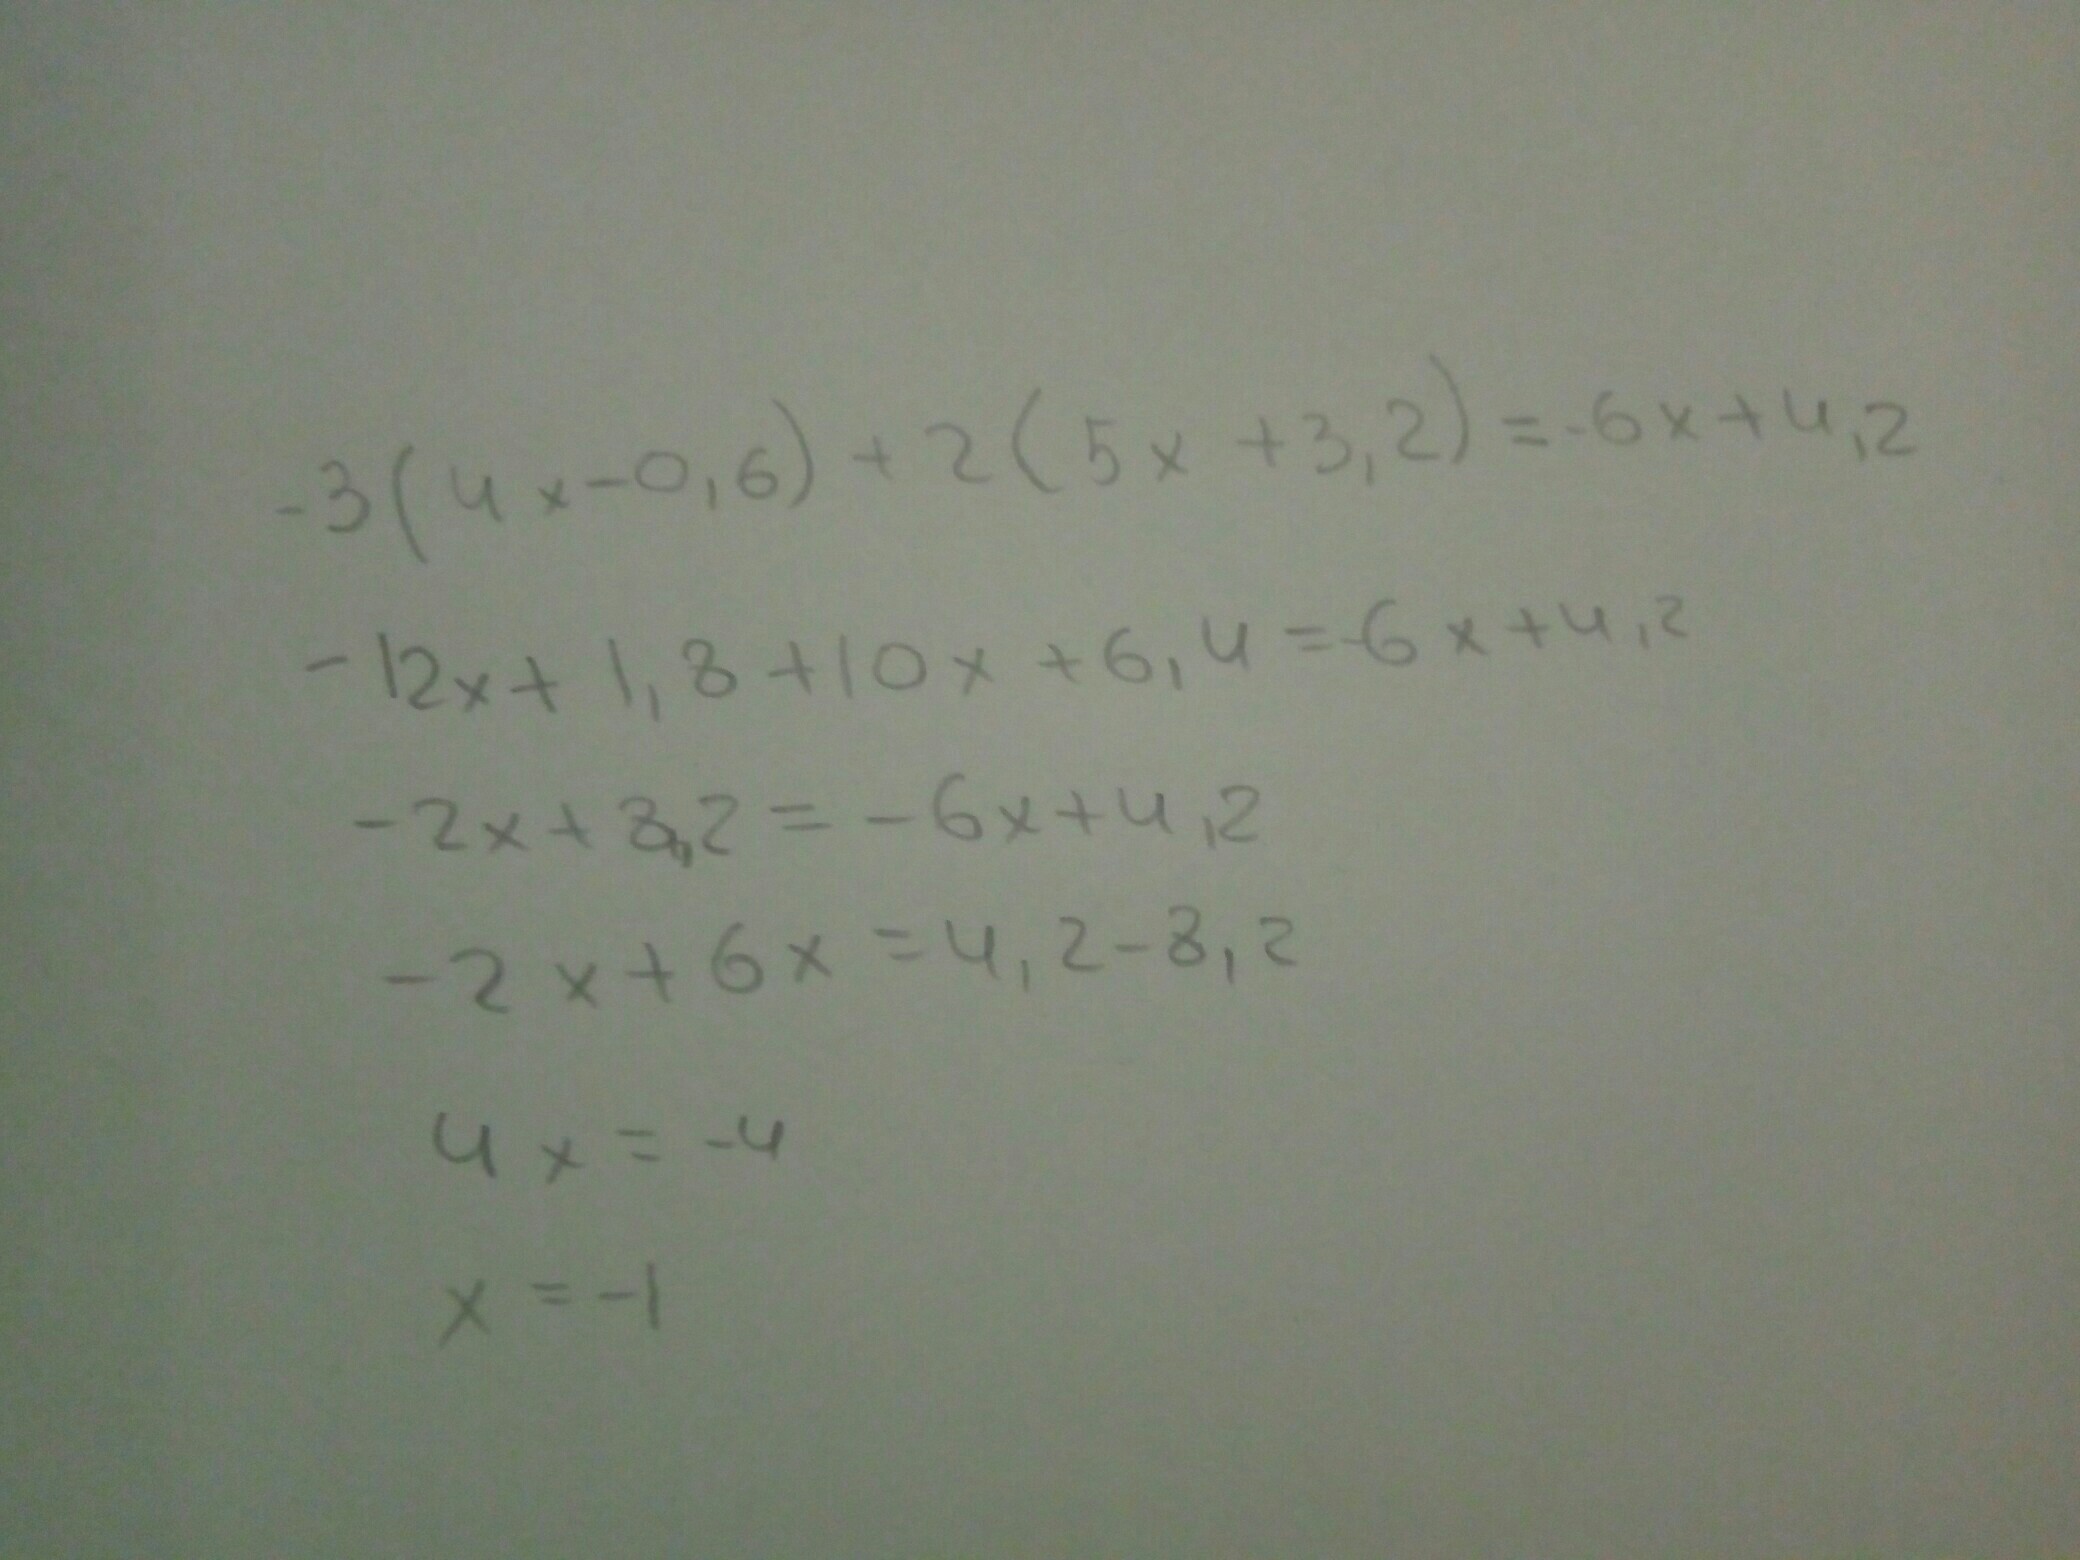 -3(4x-0,6)+2(5x+3,2)=-6x+4,2
-12x+1,8+10x+6,4=-6x+4,2
-2x+8,2=-6x+4,2
-2x+6x=4,2-8,2
4x=-4
x=-1